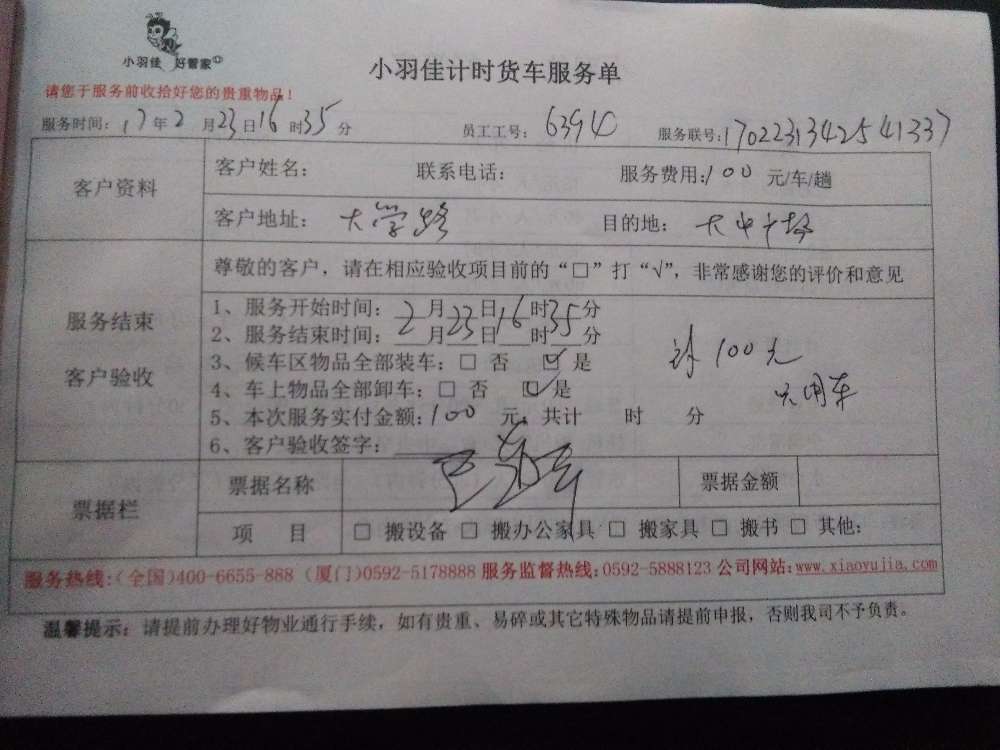 小羽佳 好管家
小羽佳计时货车服务单
请您于服务前收拾好您的贵重物品！
服务时间：17年2月23日16时35分 员工工号：63940 服务联号：1702231342541337
客户资料
客户姓名： 联系电话： 服务费用：100 元/车/趟
客户地址：大学路 目的地：大中广场
服务结束
客户验收
尊敬的客户，请在相应验收项目前的“□”打“√”，非常感谢您的评价和意见
1、服务开始时间：2月23日16时35分
2、服务结束时间：2月23日16时35分
3、候车区物品全部装车：□ 否 ☑ 是
4、车上物品全部卸车：□ 否 ☑ 是
5、本次服务实付金额：100 元，共计 时 分
6、客户验收签字：
100元
只用车
票据栏
票据名称 票据金额
项 目 □ 搬设备 □ 搬办公家具 □ 搬家具 □ 搬书 □ 其他：
服务热线：(全国)400-6655-888 (厦门)0592-5178888 服务监督热线：0592-5888123 公司网站：www.xiaoyujia.com
温馨提示：请提前办理好物业通行手续，如有贵重、易碎或其它特殊物品请提前申报，否则我司不予负责。